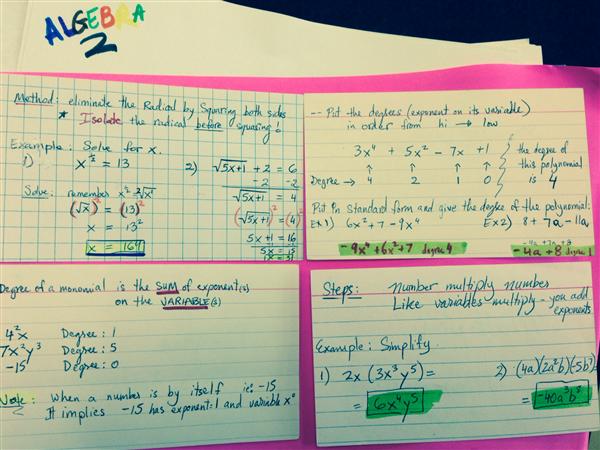 ALGEBRA
2
Method: eliminate the Radical by Squaring both sides
* Isolate the radical before squaring!
Example: Solve for x.
1) x^½ = 13
Solve: remember x^½ = ²√x¹
(√x)² = (13)²
x = 13²
x = 169
2) √5x+1 + 2 = 6
- 2 - 2
√5x+1 = 4
(√5x+1)² = (4)²
5x+1 = 16
5x = 15
x = 3
-- Put the degrees (exponent on its variable)
in order from hi → low
3x⁴ + 5x² - 7x + 1
↑ ↑ ↑ ↑
Degree → 4 2 1 0
the degree of
this polynomial
is 4
Put in standard form and give the degree of the polynomial:
Ex 1) 6x² + 7 - 9x⁴
Ex 2) 8 + 7a - 11a
-9x⁴ + 6x² + 7 degree 4
-4a + 7a + 8
-4a + 8 degree 1
Degree of a monomial is the SUM of exponent(s)
on the VARIABLE(s)
4²x Degree: 1
7x²y³ Degree: 5
-15 Degree: 0
Note: When a number is by itself ie: -15
It implies -15 has exponent: 1 and variable x⁰
Steps: Number multiply number
Like variables multiply - you add
exponents
Example: Simplify.
1) 2x (3x³y⁵) =
= 6x⁴y⁵
2) (4a)(2a²b)(-5b³)
= -40a³b⁵